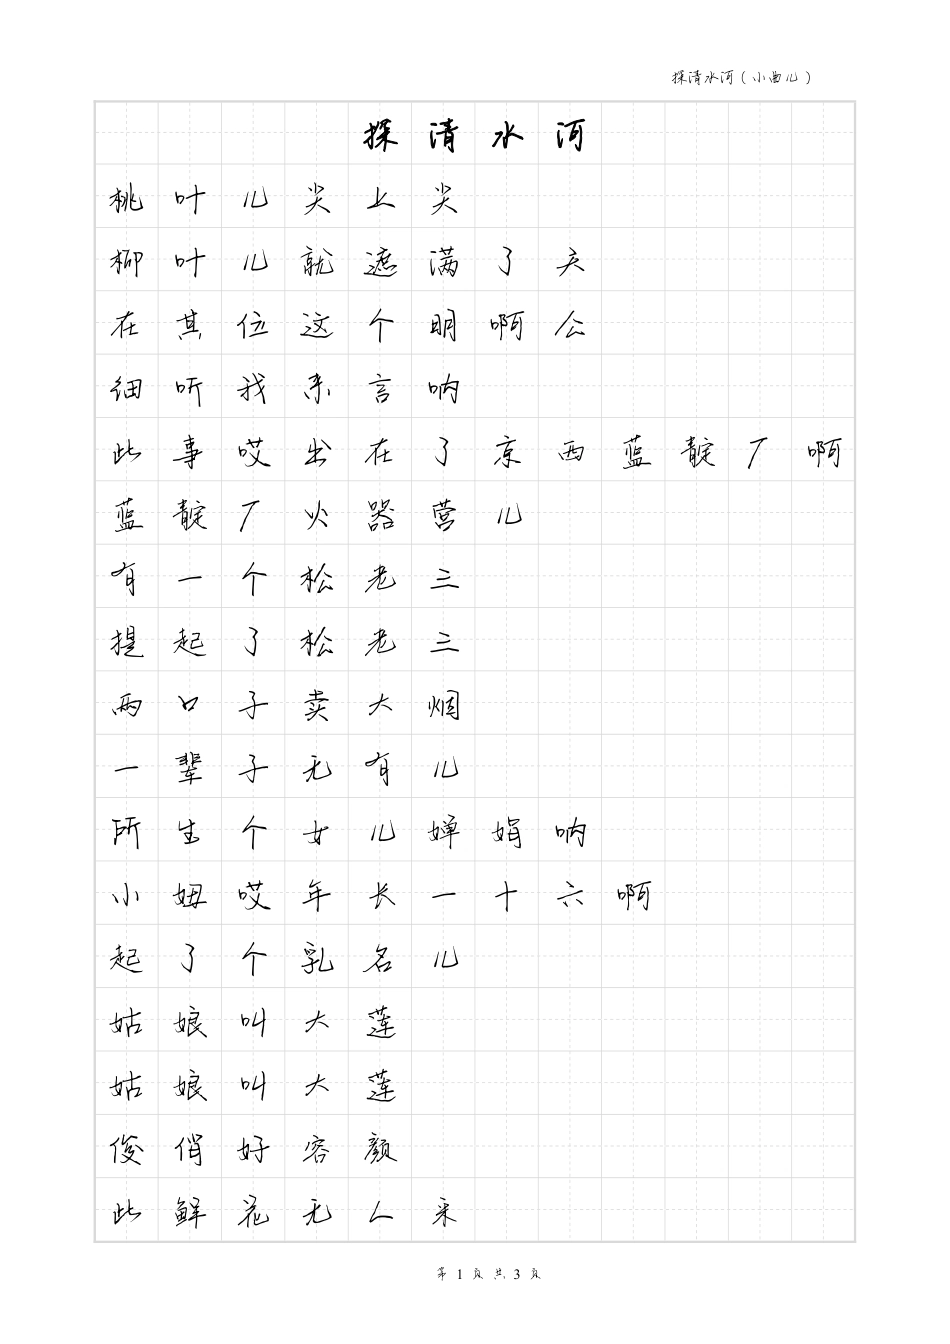 探清水河(小曲儿)
探清水河
桃叶儿尖上尖
柳叶儿就遮满了天
在其位这个明啊公
细听我来言呐
此事哎出在了京西蓝靛厂啊
蓝靛厂火器营儿
有一个松老三
提起了松老三
两口子卖大烟
一辈子无有儿
所生个女儿婵娟呐
小妞哎年长一十六啊
起了个乳名儿
姑娘叫大莲
姑娘叫大莲
俊俏好容颜
此鲜花无人采
第 1 页 共 3 页